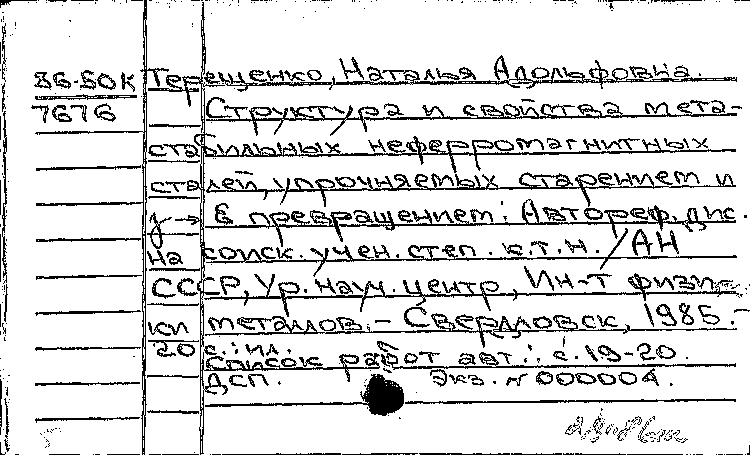 86-50К Терещенко, Наталья Адольфовна.
7676 Структура и свойства мета-
стабильных неферромагнитных
сталей, упрочняемых старением и
γ → ε превращением: Автореф. дис.
на соиск. учен. степ. к.т.н. / АН
СССР, Ур. науч. центр, Ин-т физи-
ки металлов. - Свердловск, 1985. -
20 с.: ил.
Список работ авт.: с. 19-20.
ДСП. Экз. № 000004.